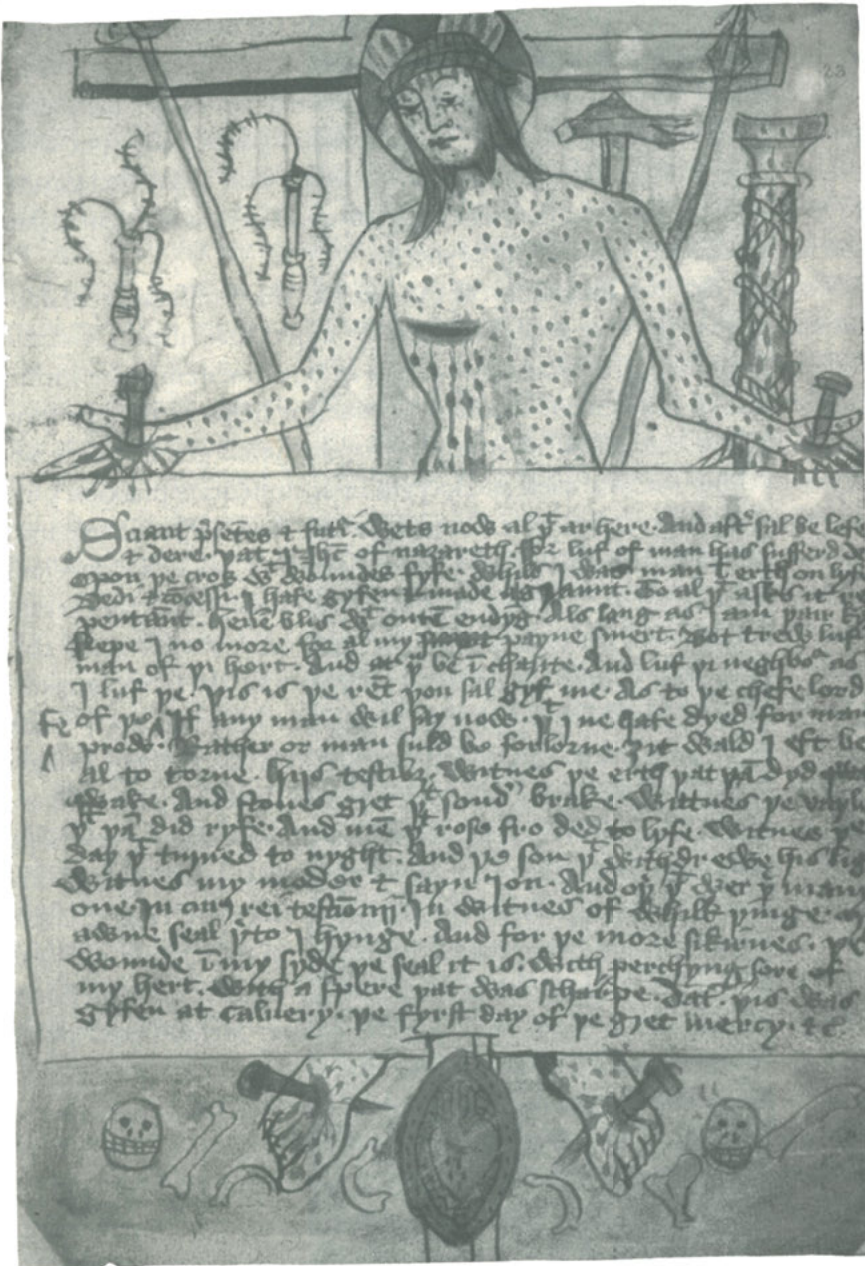 23
Sciant p̄sētes & futr̄ · Wets now al þt ar here · And aftr̄ sal be lefe
& dere · þat I Jhc̄ of nazareth · for luf of man has sufferd d
opon þe cros wt woundes fyfe · whils I was man ī erth on lyf
Dedi & cōcessi · I hafe gyfen & made a graunt · To al þt asks it re
pentant · heuē blis wt outē endyg · Als lang as I am þair k
Kepe I no more for al my payne smert · bot trew luf
man of þi hert · And at þu be ī charite · And luf þi neghbor as
I luf þe · þis is þe rēt þou sal gyf me · As to þe chefe lord
fe of þo If any man wil say now · þt I ne hafe dyed for man
prow · Rather or man suld be forlorne · zit wald I eft be
al to torne · hijs testibz · Witnes þe erth þat þā dyd
qwake · And stones gret þt sondr brake · Wittnes þe vayl
þt þā did ryfe · And mē þt rose fro ded to lyfe · Witnes þe
day þt turned to nyght · And þe son þt withdrewe his lig
Witnes my moder & sayn Jon · And oþr þt wer þr many
one · In cui9 rei testīonij · In witnes of whilk þinge · my
awne seal þrto I hynge · And for þe more sikirnes · þe
wounde ī my syde þe seal it is · With perchyng sore of
my hert · with a spere þat was scharpe · Dat · þis was
gyfen at caluery · þe fyrst day of þe gret mercy · &c